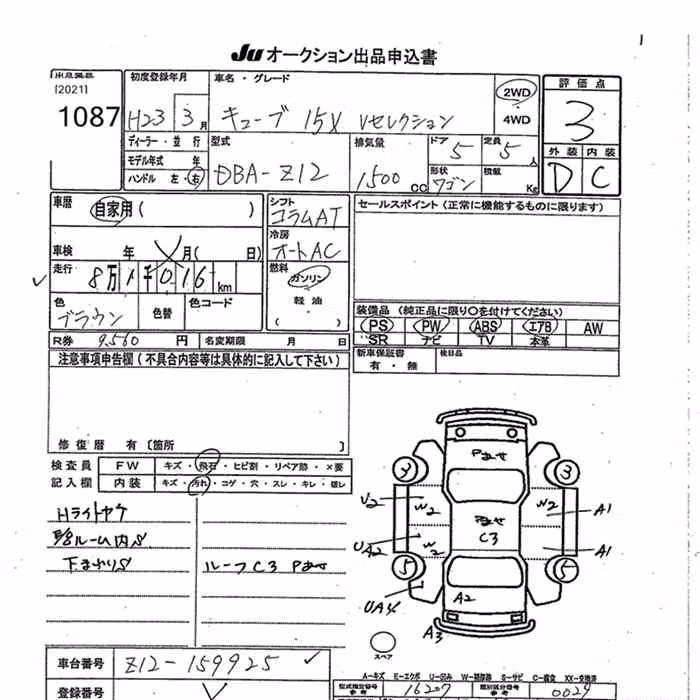 JU オークション出品申込書
[2021]
1087
初度登録年月
H23 3月
車名・グレード
キューブ 15X Vセレクション
2WD
4WD
評価点
3
外装 内装
D C
ディーラー・並行
モデル年式 年
ハンドル 左・右
型式
DBA-Z12
排気量
1,500 cc
ドア
5
定員
5人
形状
ワゴン
積載
Kg
車歴
自家用 ( )
車検 年 月 ( 日)
走行
8万1千016km
色
ブラウン
色替
色コード
シフト
コラムAT
冷房
オートAC
燃料
ガソリン
軽油
( )
R券 9,560 円
名変期限 月 日
セールスポイント (正常に機能するものに限ります)
装備品 (純正品に限り○を付けてください)
PS PW ABS エアB AW
SR ナビ TV 本革
新車保証書
有・無
後日品
注意事項申告欄 (不具合内容等は具体的に記入して下さい)
修復歴 有 [箇所 ]
検査員
記入欄
FW キズ・飛石・ヒビ割・リペア跡・×要
内装 キズ・汚れ・コゲ・穴・スレ・キレ・破レ
Hライトヤケ
ルーム内S
下まわりS
ルーフ C3 Pあせ
Pあせ
3
U2
W2
W2
A1
Pあせ
C3
UA2
W2
A1
5
5
UA4
A2
A3
スペア
車台番号 Z12-159925
登録番号
A-キズ E-エクボ U-凹み W-補修跡 S-サビ C-腐食 XX-交換済
型式指定番号
16207
類別区分番号
0029